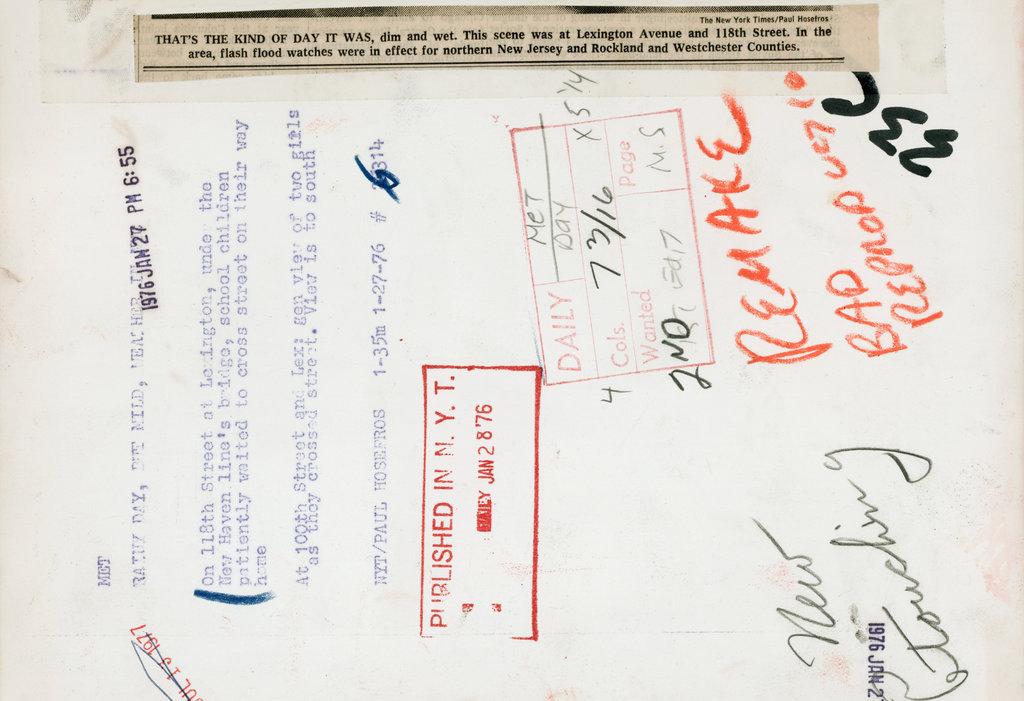 The New York Times/Paul Hosefros
THAT'S THE KIND OF DAY IT WAS, dim and wet. This scene was at Lexington Avenue and 118th Street. In the
area, flash flood watches were in effect for northern New Jersey and Rockland and Westchester Counties.
MET
RAINY DAY, BUT MILD, WEATHER
1976 JAN 27 PM 6:55
On 118th Street at Lexington, under the
New Haven line's bridge, school children
patiently waited to cross street on their way
home
At 100th Street and Lex; gen view of two girls
as they crossed street. View is to south
NYT/PAUL HOSEFROS 1-35m 1-27-76 # 314
PUBLISHED IN N. Y. T.
JAN 28 '76
MET
DAILY DAY
4 Cols. 7 3/16 X 5 1/4
Wanted Page
2ND M.S
REMAKE
BAD
REPROD
New
Touching
1976 JAN 2
JUL 13 1977